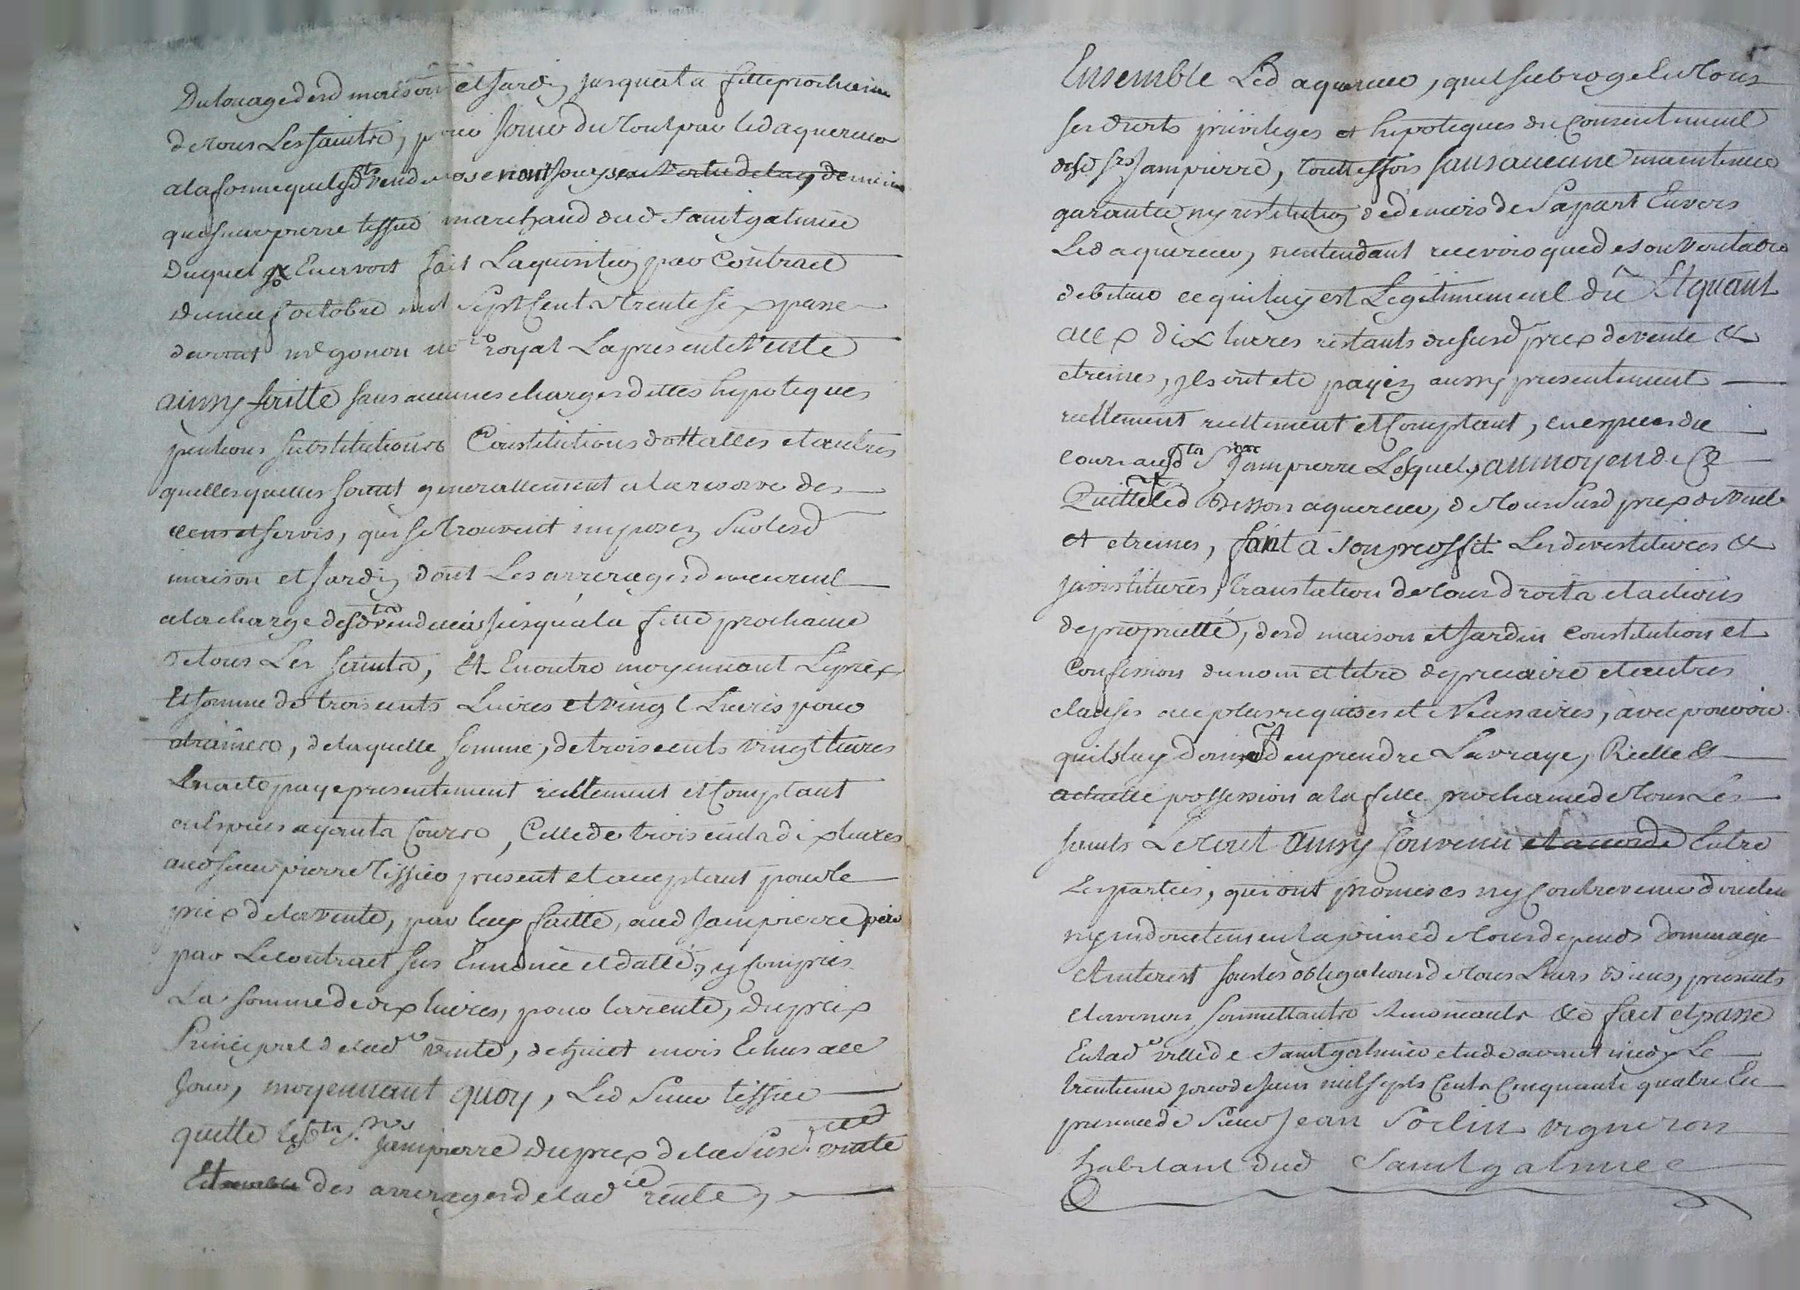 Du louage desd maison et jardin jusqu'a la fette prochaine
de tous Les saints, pour jouir du tout par led aquereur
a la forme que lesd vendeurs en ont jouy
que sieur pierre tissier marchand dud Saintgalmier
Duquel Enervoit fait Laquisition par Contract
Du neuf octobre mil Sept Cents trente six passe
devant me gonon nre royal La presente Vente
ainsy faitte sans aucunes charges dettes hypoteques
pentions substitutions Constitutions dottalles et autres
quelles quelles soient generallement a la reserve des
cens et servis, qui se trouveront imposez sur lesd
maison et jardin dont Les arrerages demeurent
a la charge desd vendeurs jusqu'a la fette prochaine
de tous Les saints, et En outre moyennant Le prix
Et somme de trois cents Livres et vingt Livres pour
etraines, de laquelle somme, de trois cents vingt livres
En a ete paye presentement reellement et Comptant
en Espèces ayants Cours, Celle de trois cents dix livres
aud sieur pierre Tissier present et acceptant pour le
prix de la vente, par luy faitte, aud Jampierre père
par Le contract sus Enoncé et datté, y compris
La somme de dix livres, pour la rente, du prix
Principal de lad vente, de huict mois Echus a ce
jour, moyennant quoy, Led Sieur tissier
quitte lesd Srs Jampierre du prix de la Susd vente
Et des arrerages de lad rente,
Ensemble Led aquereur, quil subroge En tous
ses droits privileges et hipoteques du Consentement
desd srs Jampierre, touttesfois sans aucune maintenue
garantie ny restitution de deniers de Sa part Envers
Led aquereur, n'entendant recevoir que de son veritable
debiteur ce qui luy est Legitimement dû Et quant
aux dix livres restants du susd prix de vente et
etreines, ils ont ete payez aussy presentement
reellement et Comptant, en especes de
cours ausd Srs Jampierre Lesquels, au moyen de ce
Quittent led Bisson aquereur, de tout Susd prix de vente
et etreines, font a son proffit Les devestitures et
jnvestitures, translation de tous droits et actions
de proprietté, desd maison et jardin constitution et
Confession du nom et titre de precaire et autres
clauses au plus requises et Necessaires, avec pouvoir
quils luy donnent d'en prendre La vraye, Reelle et
actuelle possession a la fette prochaine de tous Les
saints Le tout ainsy Convenu et accordé Entre
Les parties, qui ont promis es ny Contrevenir directem
ny indirectement a peine de tous depends dommages
et interest sous les obligations de tous Leurs Biens, presents
et avenirs soumettants Renonceants &c fait et passé
En lad ville de Saintgalmier etude avant midy Le
trentieme jour de juin mil sept Cents Cinquante quatre En
presence de Sieur Jean Soclin vigneron
habitant dud Saintgalmier